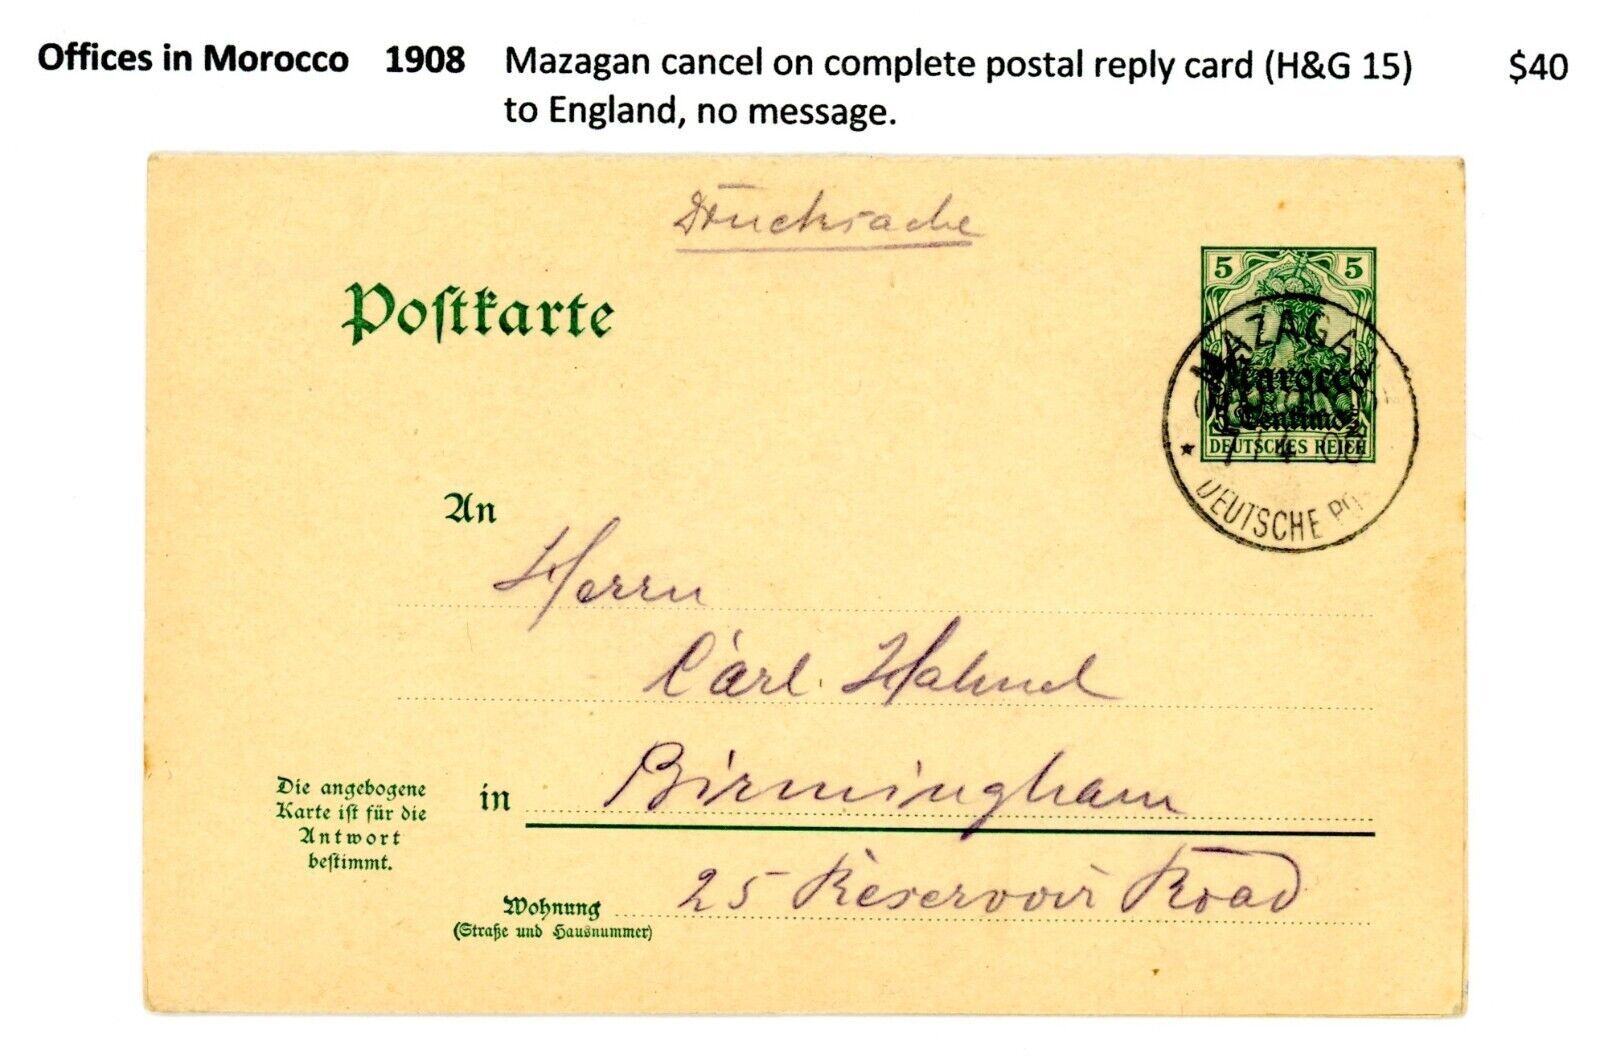 Offices in Morocco 1908 Mazagan cancel on complete postal reply card (H&G 15) $40
to England, no message.
Drucksache
Poſtkarte
5 5
Marocco
5 Centimos
DEUTSCHES REICH
MAZAGAN
DEUTSCHE
An
Herrn
Carl Hahnel
Die angebogene
Karte iſt für die
Antwort
beſtimmt.
in Birmingham
Wohnung 25 Reservoir Road
(Straße und Hausnummer)